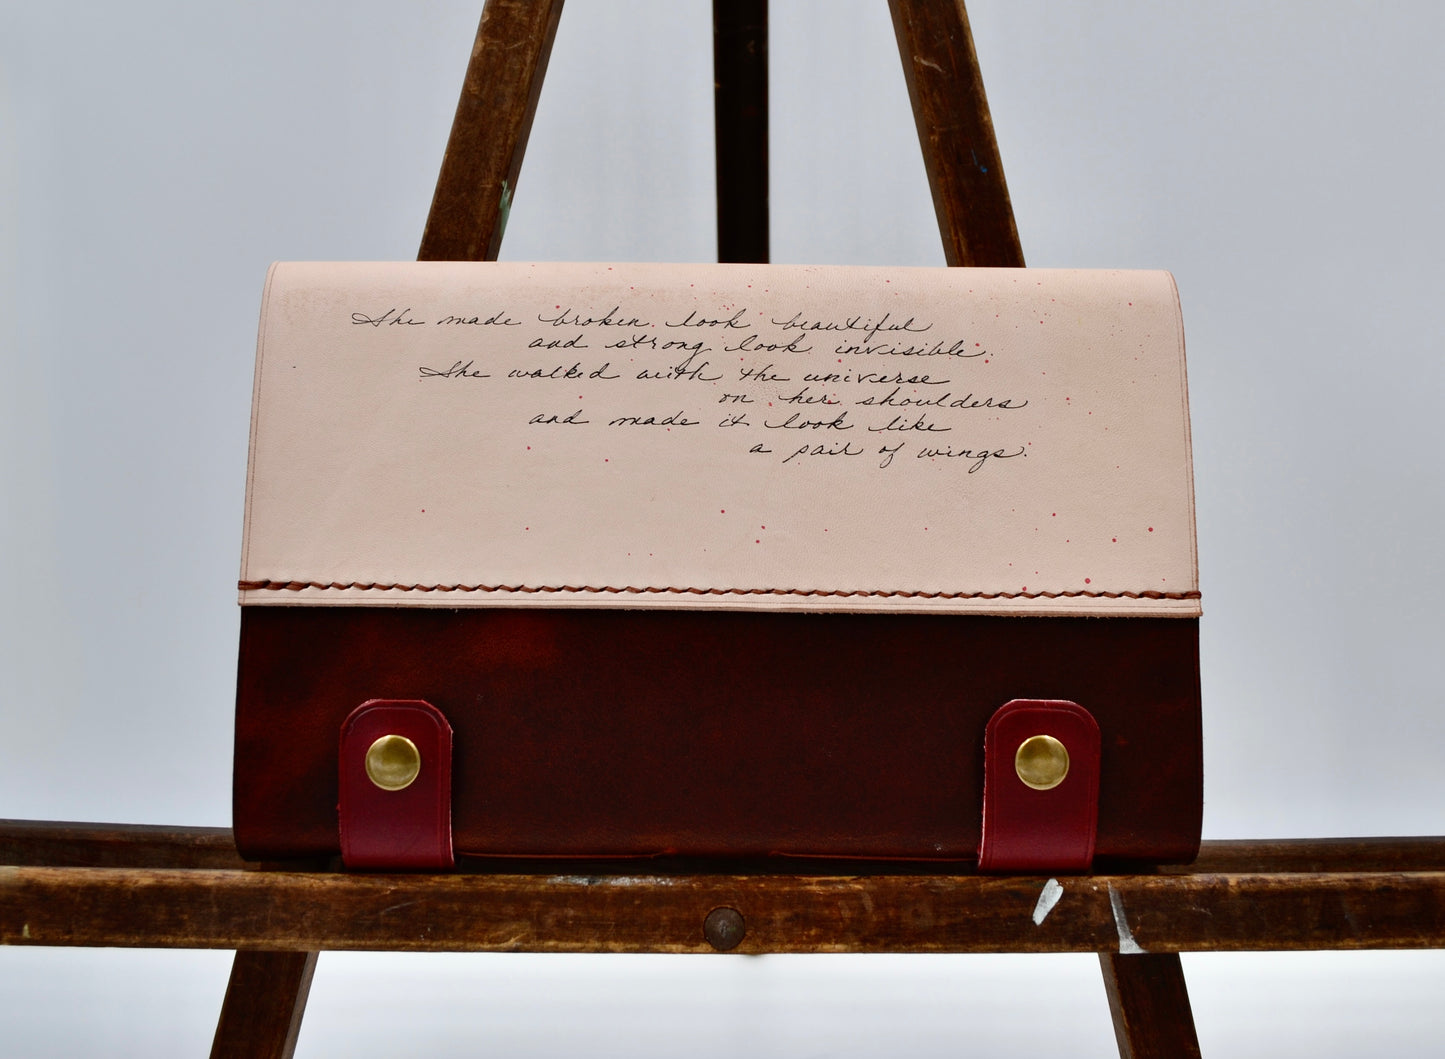 She made broken look beautiful
and strong look invisible.
She walked with the universe
on her shoulders
and made it look like
a pair of wings.